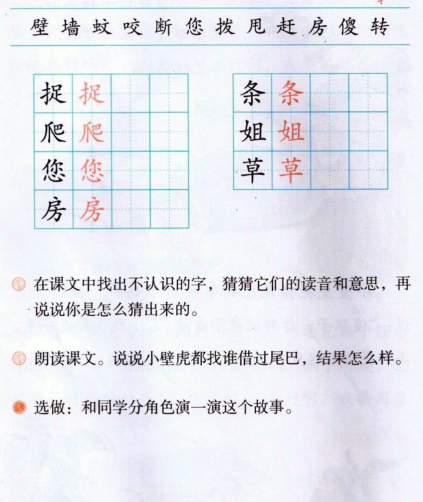 壁 墙 蚊 咬 断 您 拨 甩 赶 房 傻 转
捉 捉
爬 爬
您 您
房 房
条 条
姐 姐
草 草
在课文中找出不认识的字，猜猜它们的读音和意思，再
说说你是怎么猜出来的。
朗读课文。说说小壁虎都找谁借过尾巴，结果怎么样。
选做：和同学分角色演一演这个故事。